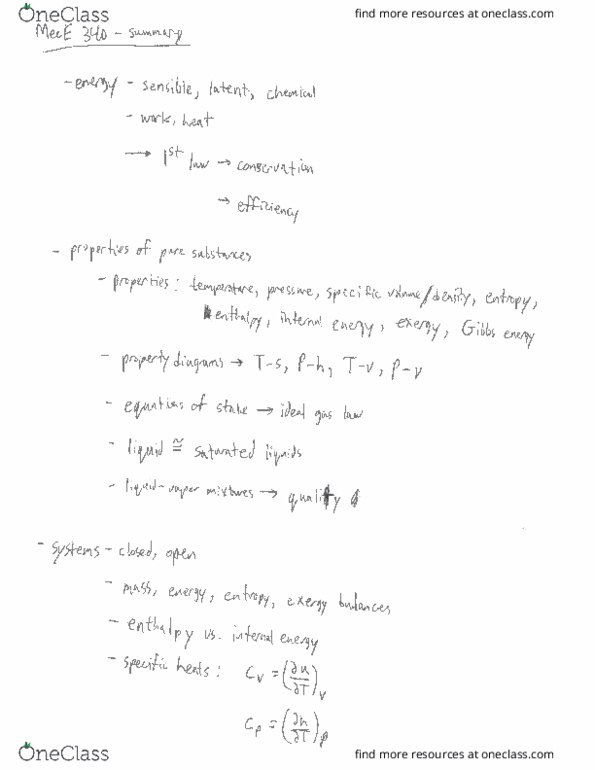 OneClass
find more resources at oneclass.com
MecE 340 - summary
- energy - sensible, latent, chemical
- work, heat
→ 1st law → conservation
→ efficiency
- properties of pure substances
- properties: temperature, pressure, specific volume/density, entropy,
enthalpy, internal energy, exergy, Gibbs energy
- property diagrams → T-s, P-h, T-v, P-v
- equations of state → ideal gas law
- liquid ≅ saturated liquids
- liquid-vapor mixtures → quality
- systems - closed, open
- mass, energy, entropy, exergy balances
- enthalpy vs. internal energy
- specific heats: Cv = (∂u/∂T)v
Cp = (∂h/∂T)p
OneClass
find more resources at oneclass.com